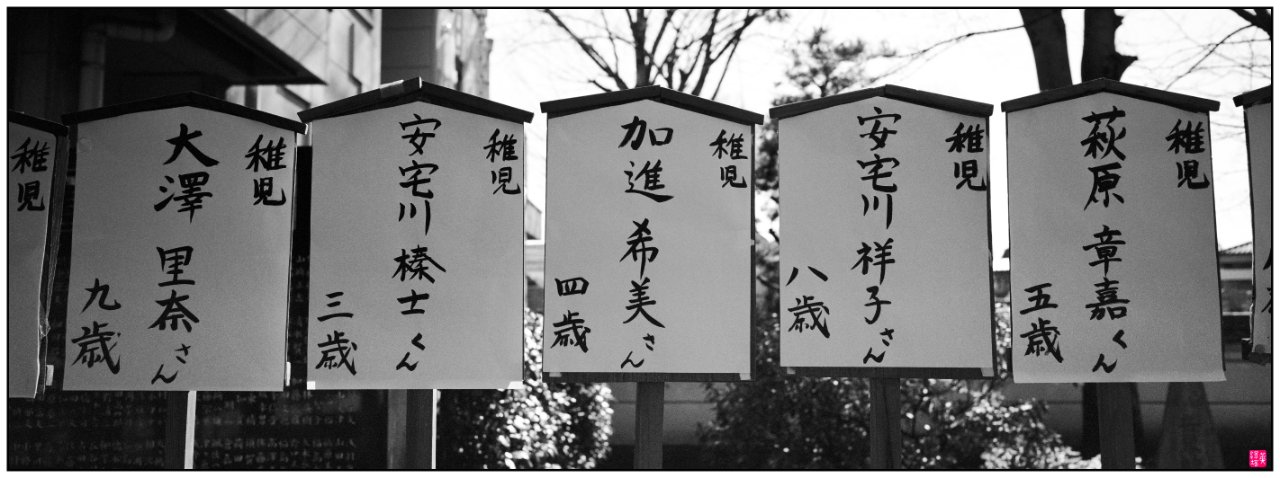 稚児
萩原 章嘉くん
五歳
稚児
安宅川 祥子さん
八歳
稚児
加進 希美さん
四歳
稚児
安宅川 榛士くん
三歳
稚児
大澤 里奈さん
九歳
稚児